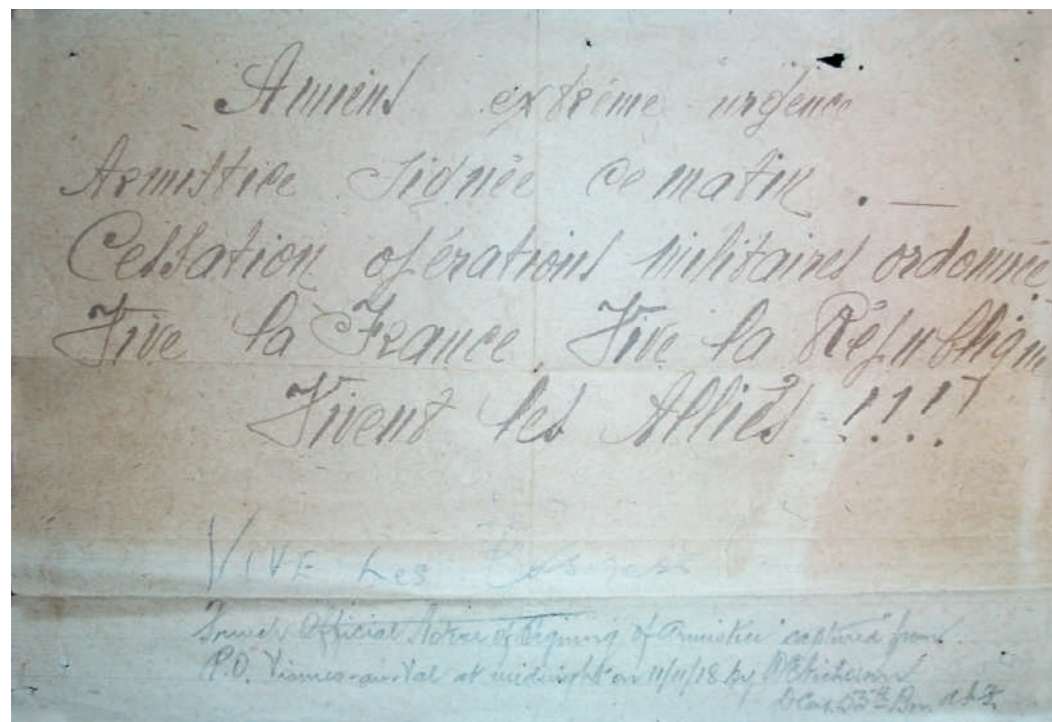 Amiens extrême urgence
Armistice Signée ce matin . —
Cessation opérations militaires ordonnée.
Vive la France, Vive la République
Vivent les Alliés !!!!
VIVE Les
French Official Notice of Signing of Armistice "captured" from
P.O. Vismes-au-Val at midnight on 11/11/18 by
53rd Bn. A.I.F.